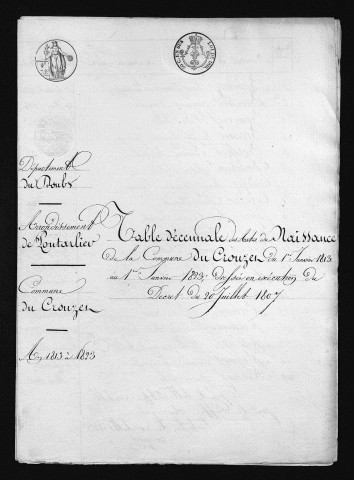 Département
du Doubs
Arrondissement
de Pontarlier
Commune
du Crouzet
An 1813 à 1823
Table décennale des Actes de Naissance
de la Commune du Crouzet du 1er Janvier 1813
au 1er Janvier 1823, dressée en exécution du
Décret du 20 Juillet 1807